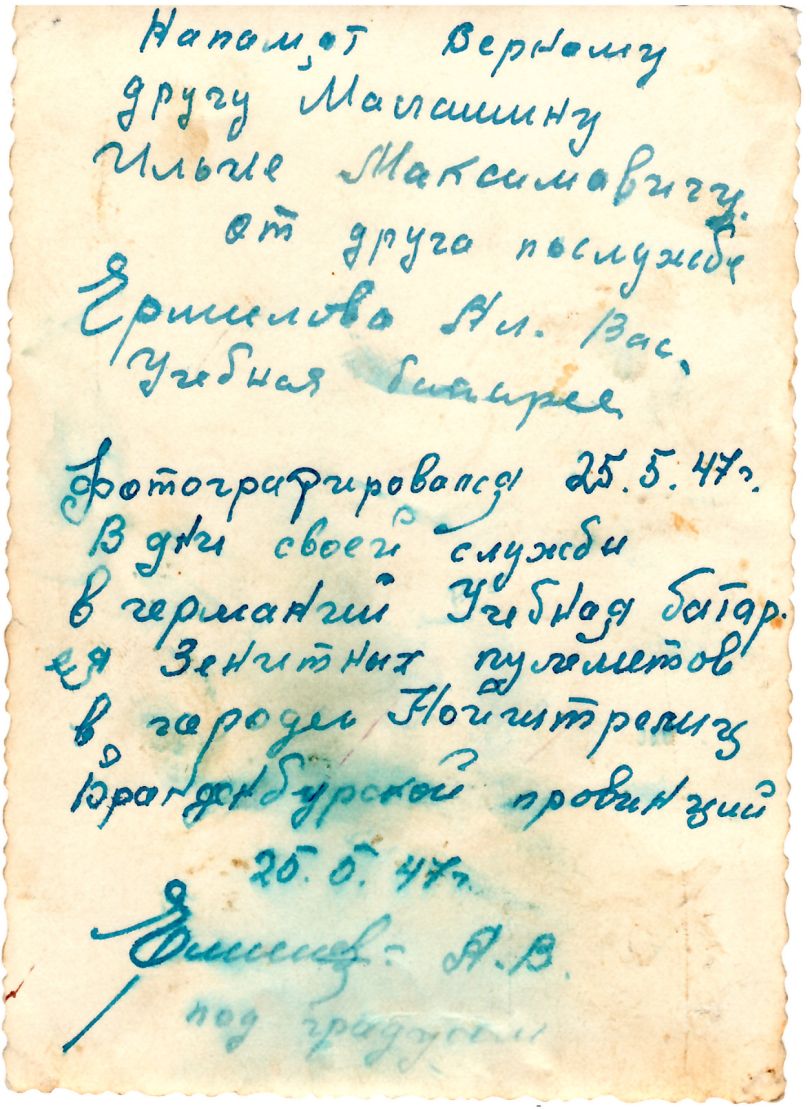 Напамят Верному
другу Малашину
Илье Максимовичу.
от друга послужбе
Ермилова Ал. Вас.
Учебная батарее
Фотографировался 25.5.47г.
В дни своей службы
в германий Учебная батар.
ея Зенитных пулеметов
в городе Нойштрелиц
Бранденбурской провинций
25.5.47г.
А.В.
под градусом